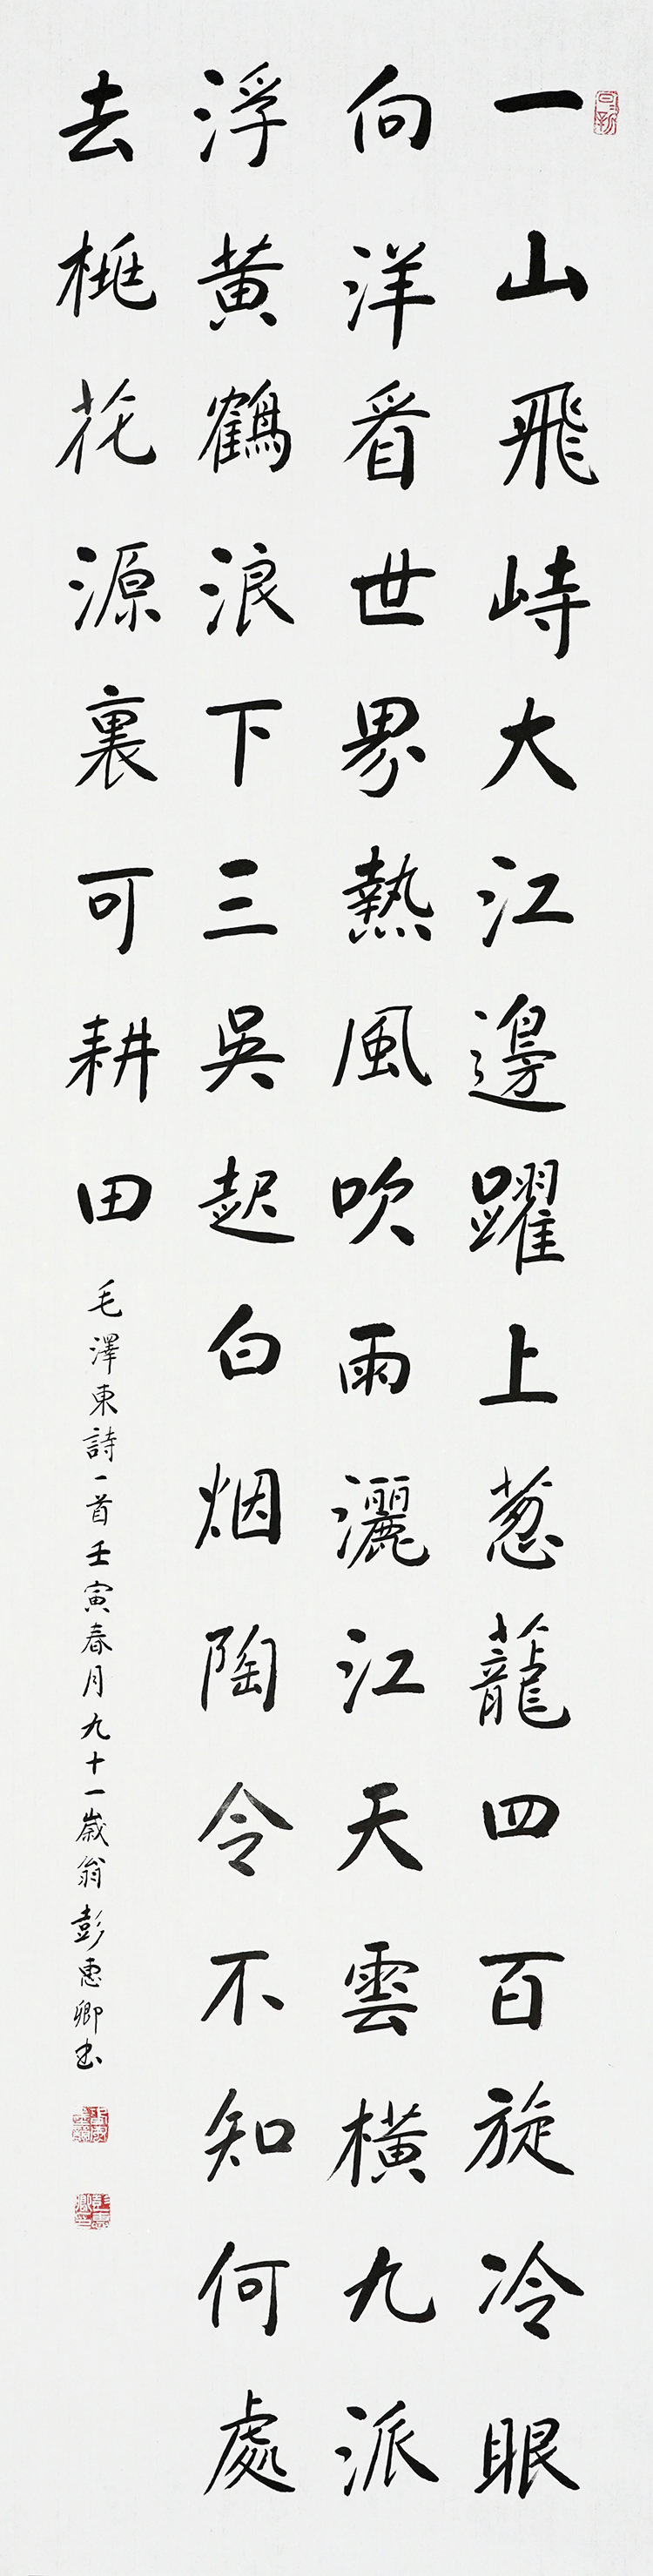 一山飛峙大江邊躍上葱蘢四百旋冷眼
向洋看世界熱風吹雨灑江天雲橫九派
浮黃鶴浪下三吳起白烟陶令不知何處
去桃花源裏可耕田
毛澤東詩一首壬寅春月九十一歲翁彭惠卿书